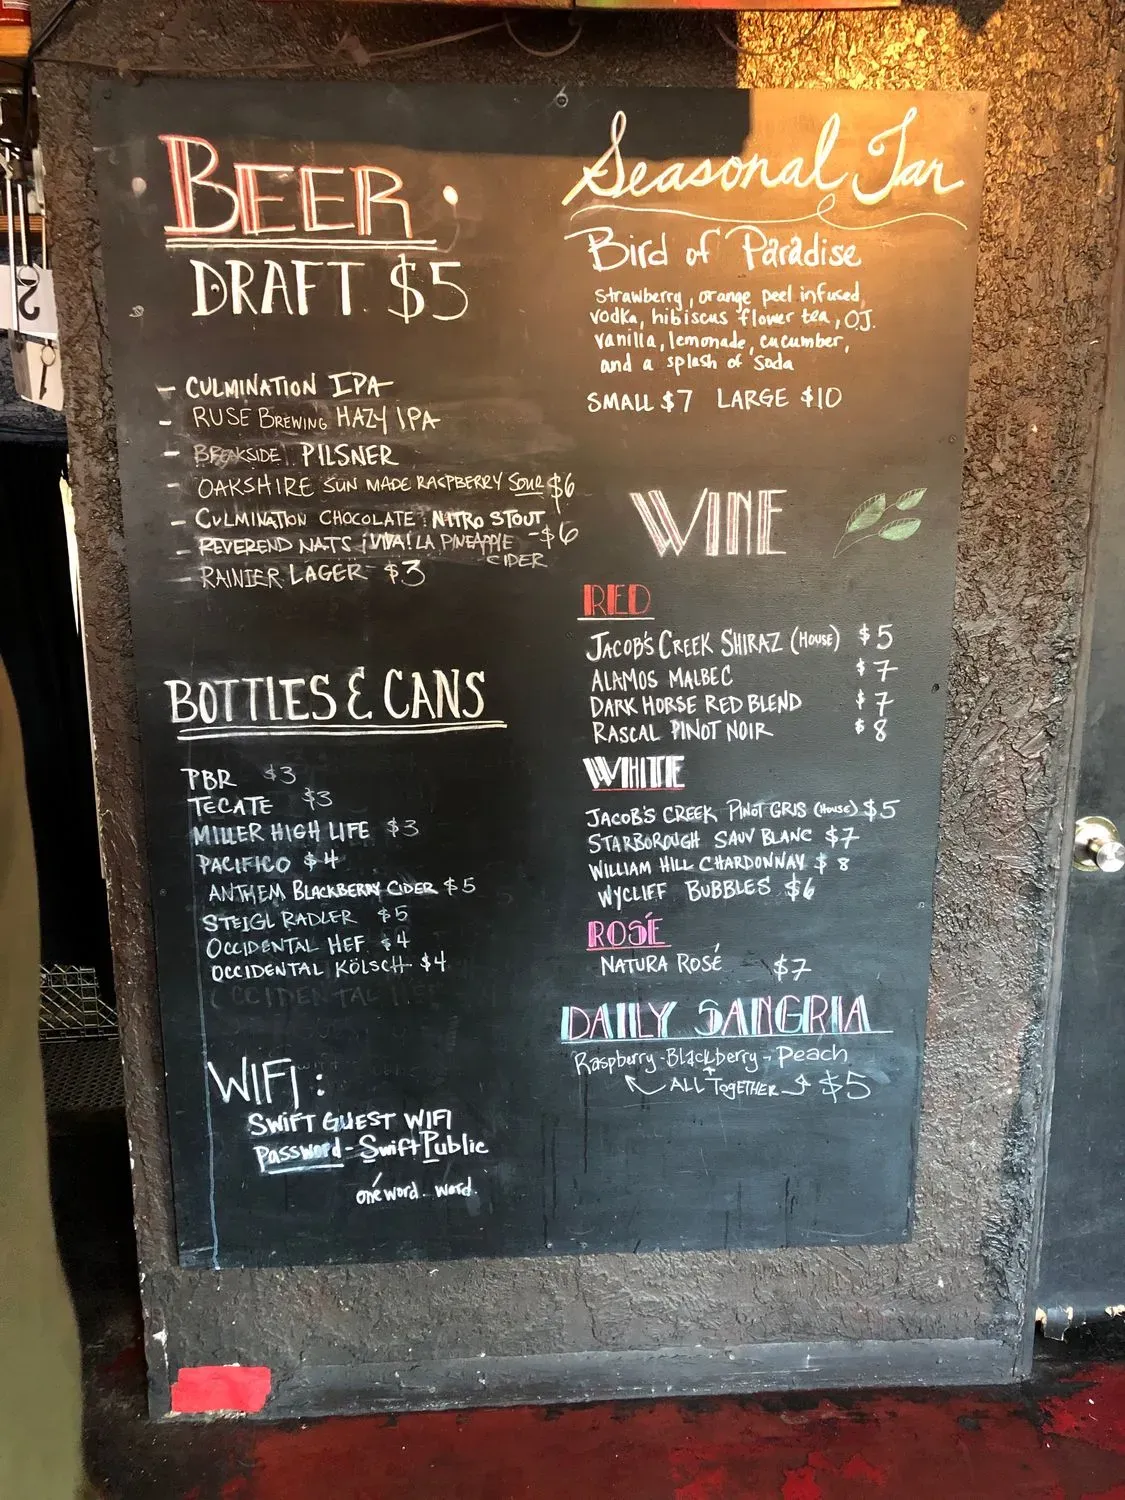 BEER
DRAFT $5
- CULMINATION IPA
- RUSE BREWING HAZY IPA
- BREAKSIDE PILSNER
- OAKSHIRE SUN MADE RASPBERRY SOUR $6
- CULMINATION CHOCOLATE NITRO STOUT
- REVEREND NATS ¡VIVA! LA PINEAPPLE - $6
CIDER
RAINIER LAGER $3
BOTTLES & CANS
PBR $3
TECATE $3
MILLER HIGH LIFE $3
PACIFICO $4
ANTHEM BLACKBERRY CIDER $5
STEIGL RADLER $5
OCCIDENTAL HEF. $4
OCCIDENTAL KÖLSCH $4
OCCIDENTAL HEF
WIFI:
SWIFT GUEST WIFI
Password - SwiftPublic
one word. word.
Seasonal Jar
Bird of Paradise
strawberry, orange peel infused
vodka, hibiscus flower tea, O.J.
vanilla, lemonade, cucumber,
and a splash of soda
SMALL $7 LARGE $10
WINE
RED
JACOB'S CREEK SHIRAZ (HOUSE) $5
ALAMOS MALBEC $7
DARK HORSE RED BLEND $7
RASCAL PINOT NOIR $8
WHITE
JACOB'S CREEK PINOT GRIS (HOUSE) $5
STARBOROUGH SAUV BLANC $7
WILLIAM HILL CHARDONNAY $8
WYCLIFF BUBBLES $6
ROSÉ
NATURA ROSÉ $7
DAILY SANGRIA
Raspberry - Blackberry - Peach
ALL TOGETHER $5